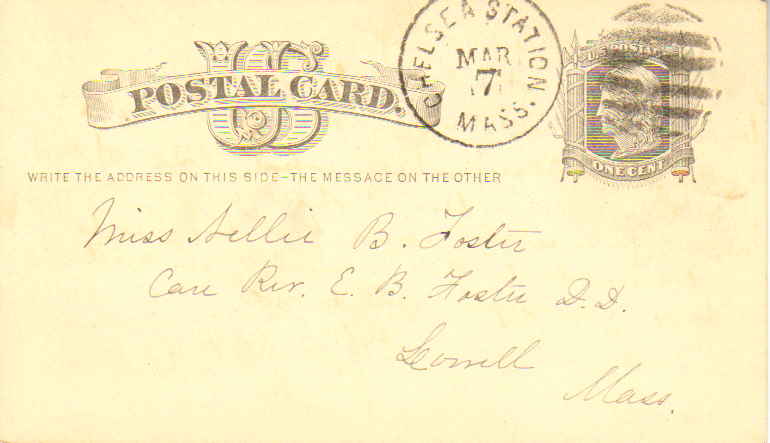 US
POSTAL CARD.
CHELSEA STATION.
MAR
7
MASS.
U.S. POSTAGE
ONE CENT
WRITE THE ADDRESS ON THIS SIDE-THE MESSAGE ON THE OTHER
Miss Nellie B. Foster
Care Rev. E. B. Foster D.D.
Lowell
Mass.